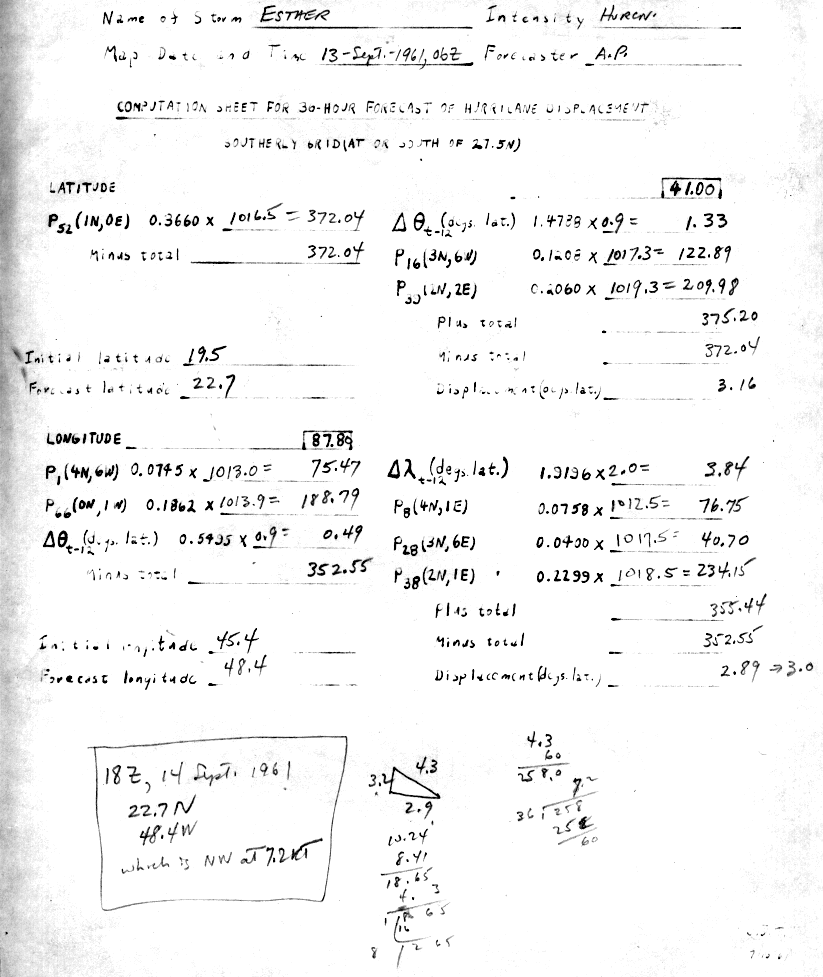 Name of Storm ESTHER Intensity HURCN.
Map Date and Time 13-Sept.-1961, 06Z Forecaster A.P.
COMPUTATION SHEET FOR 30-HOUR FORECAST OF HURRICANE DISPLACEMENT
SOUTHERLY GRID (AT OR SOUTH OF 27.5N)
LATITUDE 41.00
P52 (1N,0E) 0.3660 x 1016.5 = 372.04 Δθt-12 (degs. lat.) 1.4738 x 0.9 = 1.33
Minus total 372.04 P16 (3N,6W) 0.1208 x 1017.3 = 122.89
(2N,2E) 0.2060 x 1019.3 = 209.98
Plus total 375.20
Initial latitude 19.5 Minus total 372.04
Forecast latitude 22.7 Displacement (degs. lat.) 3.16
LONGITUDE 87.89
P1 (4N,6W) 0.0745 x 1013.0 = 75.47 Δλt-12 (degs. lat.) 1.9196 x 2.0 = 3.84
P66 (0N,1W) 0.1862 x 1013.9 = 188.79 P8 (4N,1E) 0.0758 x 1012.5 = 76.75
Δθt-12 (degs. lat.) 0.5495 x 0.9 = 0.49 P28 (3N,6E) 0.0400 x 1017.5 = 40.70
Minus total 352.55 P38 (2N,1E) 0.2299 x 1018.5 = 234.15
Plus total 355.44
Initial longitude 45.4 Minus total 352.55
Forecast longitude 48.4 Displacement (degs. lat.) 2.89 → 3.0
18Z, 14 Sept. 1961
22.7N
48.4W
which is NW at 7.2 KT
3.2 4.3
2.9
10.24
8.41
18.65
4.3
60
258.0
7.2
36 258
60